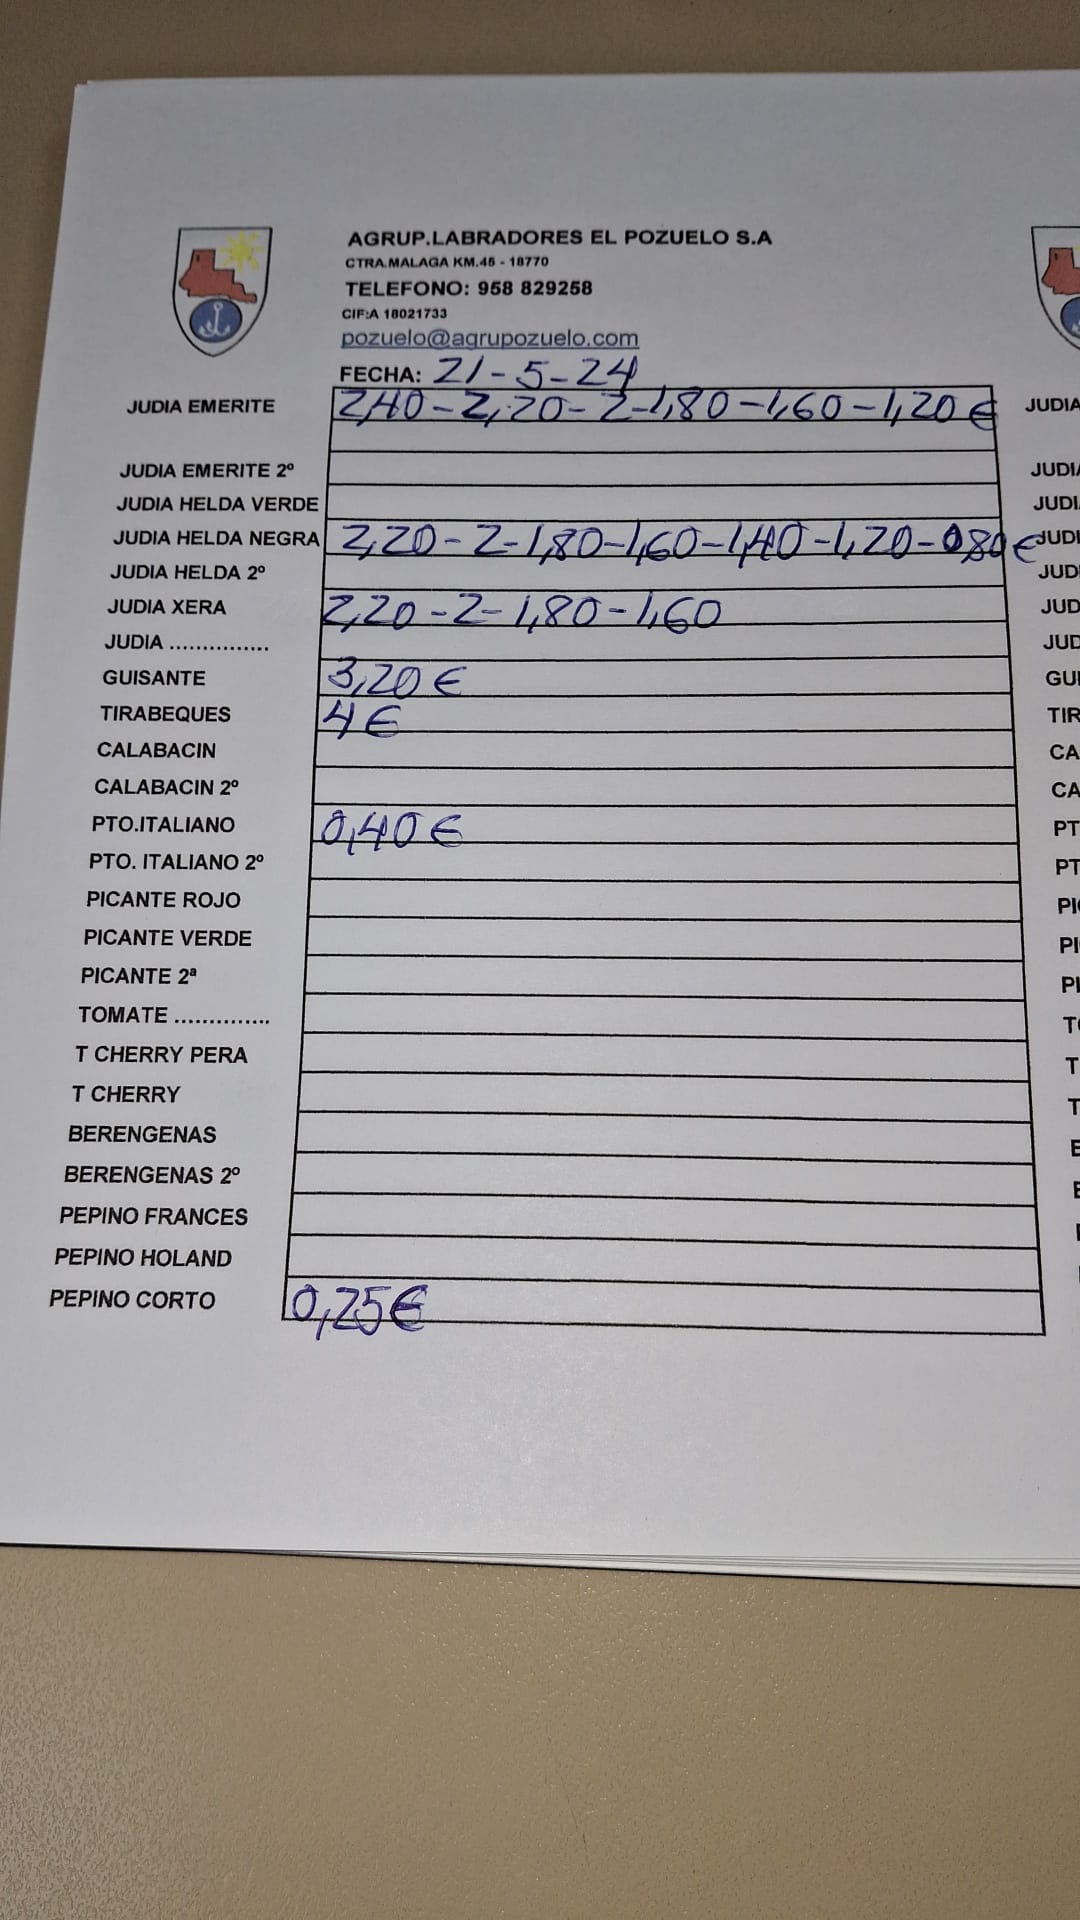 AGRUP.LABRADORES EL POZUELO S.A
CTRA.MALAGA KM.45 - 18770
TELEFONO: 958 829258
CIF:A 18021733
pozuelo@agrupozuelo.com
FECHA: 21-5-24
JUDIA EMERITE 2,40-2,20-2-1,80-1,60-1,20€
JUDIA EMERITE 2º
JUDIA HELDA VERDE
JUDIA HELDA NEGRA 2,20-2-1,80-1,60-1,40-1,20-0,80€
JUDIA HELDA 2º
JUDIA XERA 2,20-2-1,80-1,60
JUDIA ...............
GUISANTE 3,20€
TIRABEQUES 4€
CALABACIN
CALABACIN 2º
PTO.ITALIANO 0,40€
PTO. ITALIANO 2º
PICANTE ROJO
PICANTE VERDE
PICANTE 2ª
TOMATE ..............
T CHERRY PERA
T CHERRY
BERENGENAS
BERENGENAS 2º
PEPINO FRANCES
PEPINO HOLAND
PEPINO CORTO 0,25€
JUDIA